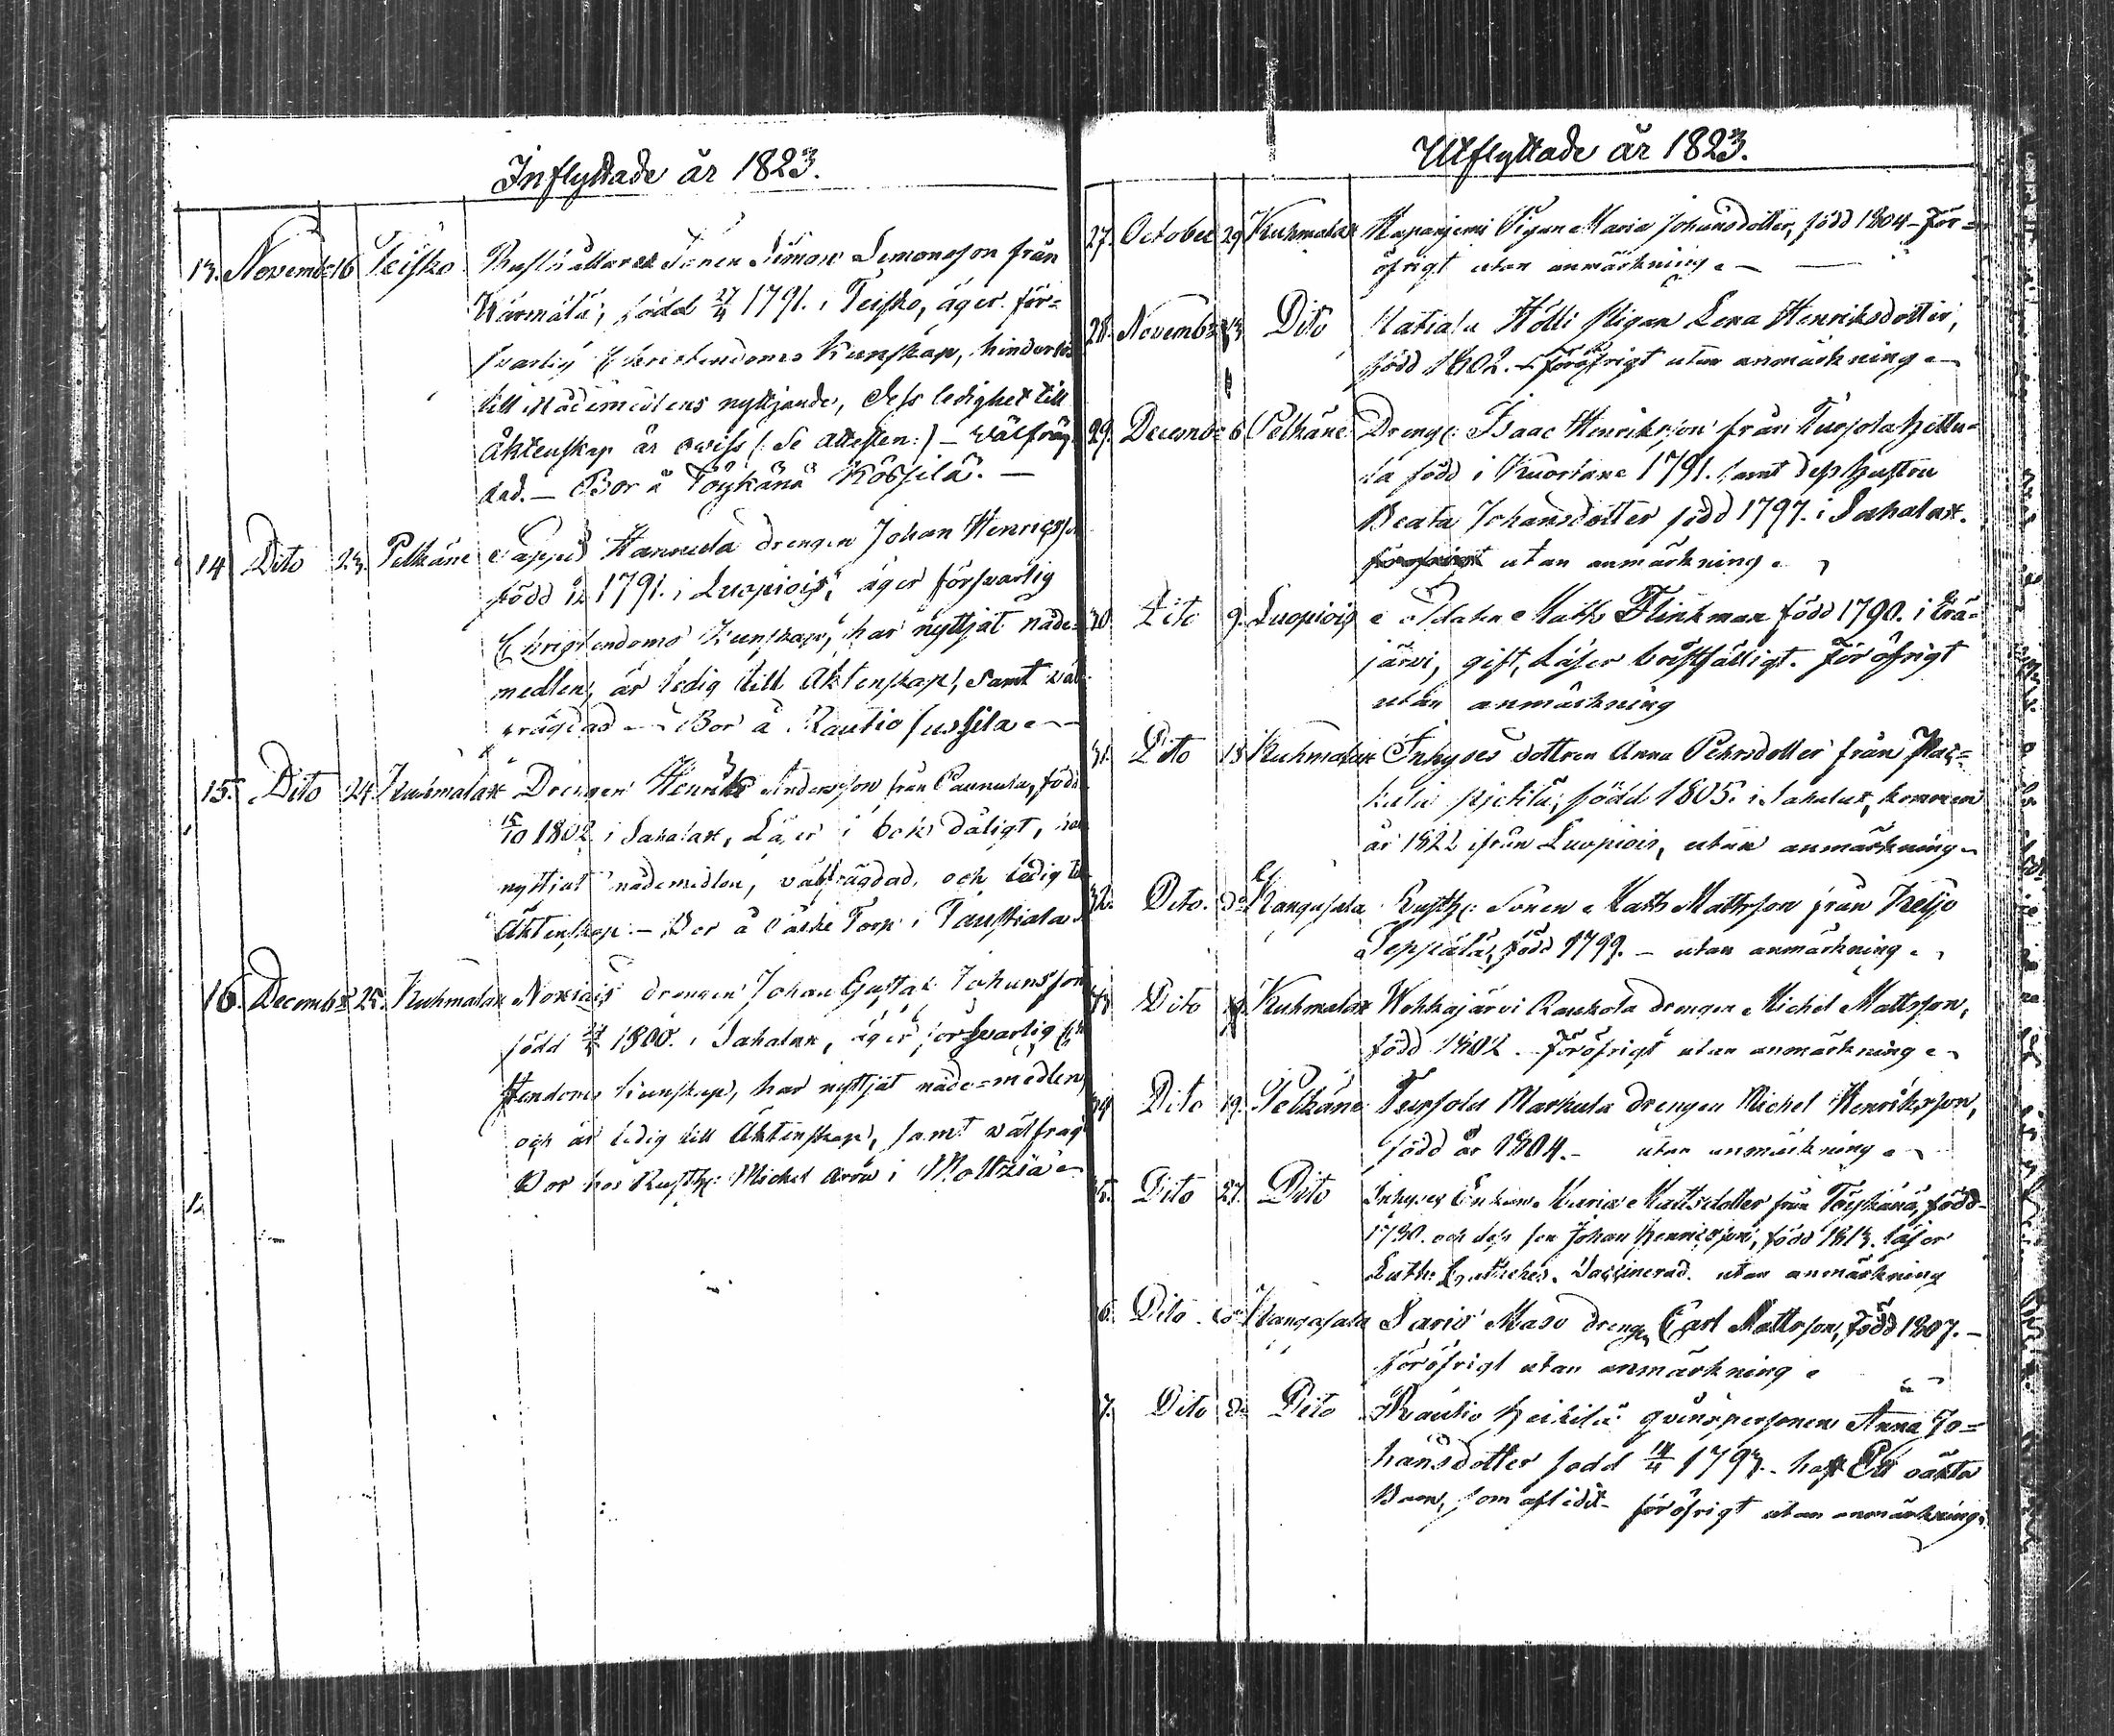 Inflyttade år 1823.
13. Novembr 16 Teisko Rusthållare Sonen Simon Simonsson från
Wärmälä, född 27/4 1791. i Teisko, äger för=
svarlig Christendoms Kunskap, hinderlös
till Nådemedlens nyttjande, dess ledighet till
Äktenskap är owiss (: Se attesten :) – välfräg
dad. – Bor å Töykänä Kössilä. –
14 Dito 23. Pelkäne Hannula drengen Johan Henricsson
född 1791. i Luopiois, äger försvarlig
Christendoms Kunskap, har nyttjat nåde=
medlen, är ledig till Äktenskap, samt väl
frägdad – Bor å Rautio Jussila –
15. Dito 24. Kuhmalax Drengen Henrik Andersson från Pannula, född
15/10 1802 i Sahalax, Läser i bok dåligt, har
nyttjat nådemedlen, välfrägdad, och ledig till
Äktenskap. – Bor å Torp i
16. Decembr 25. Kuhmalax drengen Johan Gustaf Johansson
född 1800. i Sahalax, äger försvarlig Chri
stendoms kunskap, har nyttjat nåde=medlen,
och är ledig till Äktenskap, samt välfräg
Bor hos Rusth: Michel i Moltzia
Utflyttade år 1823.
27. October 29 Kuhmalax Pigan Maria Johansdotter, född 1804 – För=
öfrigt utan anmärkning. –
28. Novembr 23 Dito Hatiala Hölli Pigan Lena Henriksdotter,
född 1802. – Föröfrigt utan anmärkning –
29. Decemb: 6 Pelkäne Dreng: Isaac Henriksson från Turpola
född i Kuortane 1791. samt dess hustru
Beata Johansdotter född 1797. i Sahalax.
föröfrigt utan anmärkning.
30. Dito 9. Luopiois Soldaten Matts Flinkman född 1790. i Erä=
järvi, gift, Läser bristfälligt. För öfrigt
utan anmärkning
31. Dito 13 Kuhmalax Inhyses dottren Anna Pehrsdotter från
född 1805. i Sahalax, kommen
år 1822 ifrån Luopiois, utan anmärkning
32. Dito. do Kangasala Rusth: Sonen Matts Mattsson från Keljo
Seppälä, född 1799. – utan anmärkning.
Dito Kuhmalax Wehkajärvi Raukola drengen Michel Mattsson,
född 1802. Föröfrigt utan anmärkning
34 Dito 19. Pelkäne Turpola Markula drengen Michel Henriksson,
född år 1804. – utan anmärkning
35. Dito 27. Dito Inhyses Enkan Maria Mattsdotter från Töykänä, född
1780. och dess son Johan Henricsson, född 1813. läser
Luth: Cateches. Vaccinerad. utan anmärkning
6. Dito do Kangasala Saris Maso drengen Carl Mattsson, född 1807. –
föröfrigt utan anmärkning.
7. Dito do Dito Rautio Heikilä qvinspersonen Anna Jo=
hansdotter född 14/4 1793. – haft Ett oäkta
Barn, som aflidit – föröfrigt utan anmärkning.